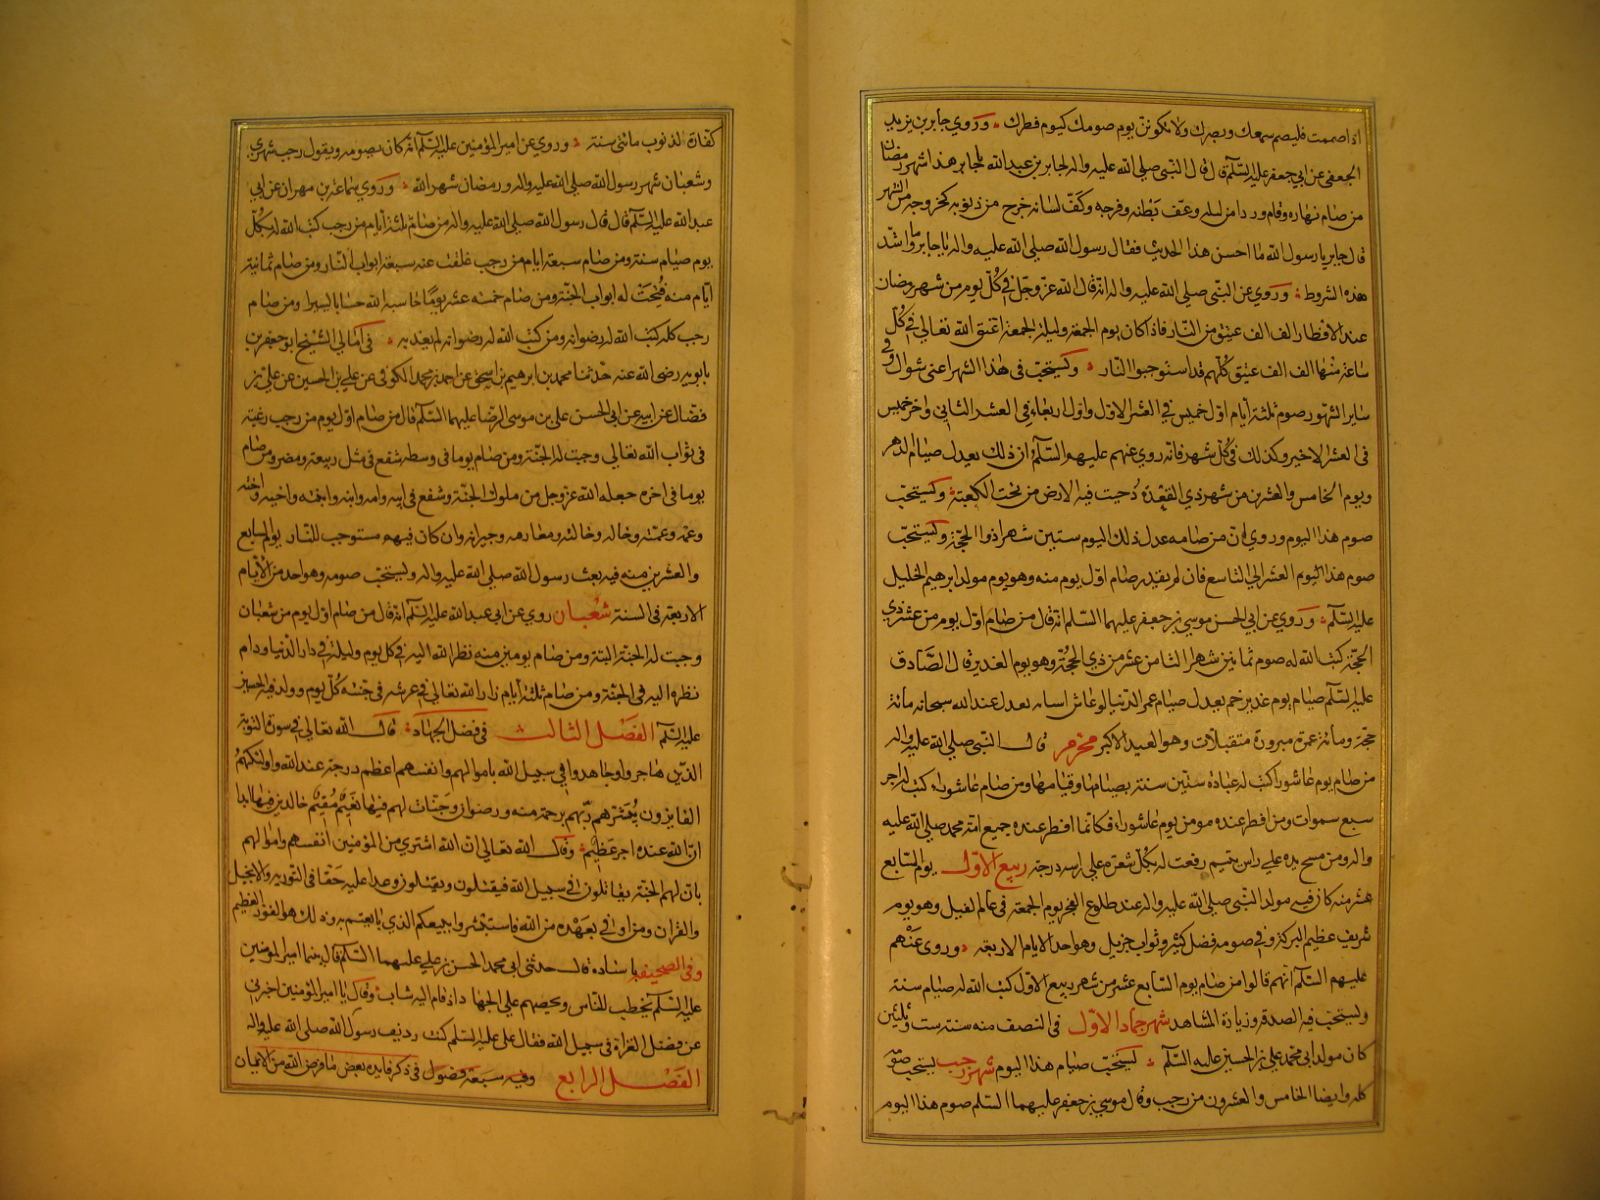 اذا صمت فليصم سمعك وبصرك ولا يكونن يوم صومك كيوم فطرك وروي جابر بن يزيد
الجعفي عن ابي جعفر عليه السلم قال قال النبي صلي الله عليه واله لجابر بن عبد الله يا جابر هذا شهر رمضان
من صام نهاره وقام وردا من ليله وعف بطنه وفرجه وكف لسانه خرج من ذنوبه كخروجه من الشهر
قال جابر يا رسول الله ما احسن هذا الحديث فقال رسول الله صلي الله عليه واله يا جابر وما اشد
هذه الشروط وروي عن النبي صلي الله عليه واله انه قال ان الله عز وجل في كل يوم من شهر رمضان
عند الافطار الف الف عتيق من النار فاذا كان يوم الجمعة وليلة الجمعة اعتق الله تعالي في كل
ساعة منها الف الف عتيق كلهم قد استوجبوا النار ويستحب في هذا الشهر اعني شوال وفي
ساير الشهور صوم ثلثة أيام اول خميس في العشر الاول واول اربعاء في العشر الثاني واخر خميس
في العشر الاخير وكذلك في كل شهر فانه روي عنهم عليهم السلم ان ذلك يعدل صيام الدهر
ويوم الخامس والعشرين من شهر ذي القعدة دحيت فيه الارض من تحت الكعبة ويستحب
صوم هذا اليوم وروي ان من صامه عدل ذلك اليوم ستين شهرا ذو الحجة ويستحب
صوم هذا اليوم العشر الي التاسع فان لم يقدر صام اول يوم منه وهو يوم مولد ابرهيم الخليل
عليه السلم وروي عن ابي الحسن موسي بن جعفر عليهما السلم انه قال من صام اول يوم من عشر ذي
الحجة كتب الله له صوم ثمانين شهرا الثامن عشر من ذي الحجة وهو يوم الغدير قال الصادق
عليه السلم صيام يوم غدير خم يعدل صيام عمر الدنيا لو عاش انسان يعدل عند الله سبحانه مائة
حجة ومائة عمرة مبرورة متقبلات وهو العيد الاكبر محرم قال النبي صلي الله عليه واله
من صام يوم عاشورا كتب له عبادة ستين سنة بصيامها وقيامها ومن صام عاشوراء كتب له اجر
سبع سموات ومن افطر عنده مومن يوم عاشوراء فكانما افطر عنده جميع امة محمد صلي الله عليه
واله ومن مسح يده علي راس يتيم رفعت له بكل شعرة علي راسه درجة ربيع الاول يوم السابع
عشر منه كان فيه مولد النبي صلي الله عليه واله عند طلوع الفجر يوم الجمعة في عام الفيل وهو يوم
شريف عظيم البركة وفي صومه فضل كثير وثواب جزيل وهو احد الايام الاربعة وروي عنهم
عليهم السلم انهم قالوا من صام يوم السابع عشر من شهر ربيع الاول كتب الله له صيام سنة
ويستحب فيه الصدقة وزيارة المشاهد شهر جماد الاول في النصف منه سنة ست وثلثين
كان مولد ابي محمد علي بن الحسين عليه السلم يستحب صيام هذا اليوم شهر رجب يستحب صومه
كله وايضا الخامس والعشرون من رجب وقال موسي بن جعفر عليهما السلم صوم هذا اليوم
كفارة الذنوب مائتي سنة وروي عن امير المؤمنين عليه السلم انه كان يصومه ويقول رجب شهري
وشعبان شهر رسول الله صلي الله عليه واله ورمضان شهر الله وروي سماعة بن مهران عن ابي
عبد الله عليه السلم قال قال رسول الله صلي الله عليه واله من صام ثلثة أيام من رجب كتب الله له بكل
يوم صيام سنة ومن صام سبعة ايام من رجب غلقت عنه سبعة ابواب النار ومن صام ثمانية
ايام منه فتحت له ابواب الجنة ومن صام خمسة عشر يوما حاسبه الله حسابا يسيرا ومن صام
رجب كله كتب الله له رضوانه ومن كتب الله له رضوانه لم يعذبه في امالي الشيخ ابو جعفر بن
بابويه رضي الله عنه حدثنا محمد بن ابرهيم بن اسحق عن احمد بن محمد الكوفي عن علي بن الحسين عن علي بن
فضال عن ابيه عن ابي الحسن علي بن موسي الرضا عليهما السلم قال من صام اول يوم من رجب رغبة
في ثواب الله تعالي وجبت له الجنة ومن صام يوما في وسطه شفع في مثل ربيعة ومضر ومن صام
يوما في اخره جعله الله عز وجل من ملوك الجنة وشفع في ابيه وامه وابنه وابنته واخيه واخته
وعمه وعمته وخاله وخالته ومعارفه وجيرانه وان كان فيهم مستوجب للنار يوم السابع
والعشرين منه فيه بعث رسول الله صلي الله عليه واله ويستحب صومه وهو احد من الأيام
الاربعة في السنة شعبان روي عن ابي عبد الله عليه السلم انه قال من صام اول يوم من شعبان
وجبت له الجنة البتة ومن صام يومين منه نظر الله اليه في كل يوم وليلة في دار الدنيا ودام
نظره اليه في الجنة ومن صام ثلثة أيام زار الله تعالي في عرشه في جنته كل يوم وولد فيه الحسين
عليه السلم الفصل الثالث في فضل الجهاد قال الله تعالي في سورة التوبة
الذين هاجروا وجاهدوا في سبيل الله باموالهم وانفسهم اعظم درجة عند الله واولئك هم
الفايزون يبشرهم ربهم برحمة منه ورضوان وجنات لهم فيها نعيم مقيم خالدين فيها ابدا
ان الله عنده اجر عظيم وقال الله تعالي ان الله اشتري من المؤمنين انفسهم واموالهم
بان لهم الجنة يقاتلون في سبيل الله فيقتلون ويقتلون وعدا عليه حقا في التورية والانجيل
والقران ومن اوفي بعهده من الله فاستبشروا ببيعكم الذي بايعتم به وذلك هو الفوز العظيم
وفي الصحيفة باسناده قال حدثني ابي محمد الحسن بن علي عليهما السلم قال بينما امير المؤمنين
عليه السلم يخطب للناس ويحضهم علي الجهاد اذ قام اليه شاب وقال يا امير المؤمنين اخبرني
عن فضل الغزاة في سبيل الله فقال علي عليه السلم كنت رديف رسول الله صلي الله عليه واله
الفصل الرابع وفيه سبعة فصول في ذكر فايدة بعض ما فرض الله من الايمان